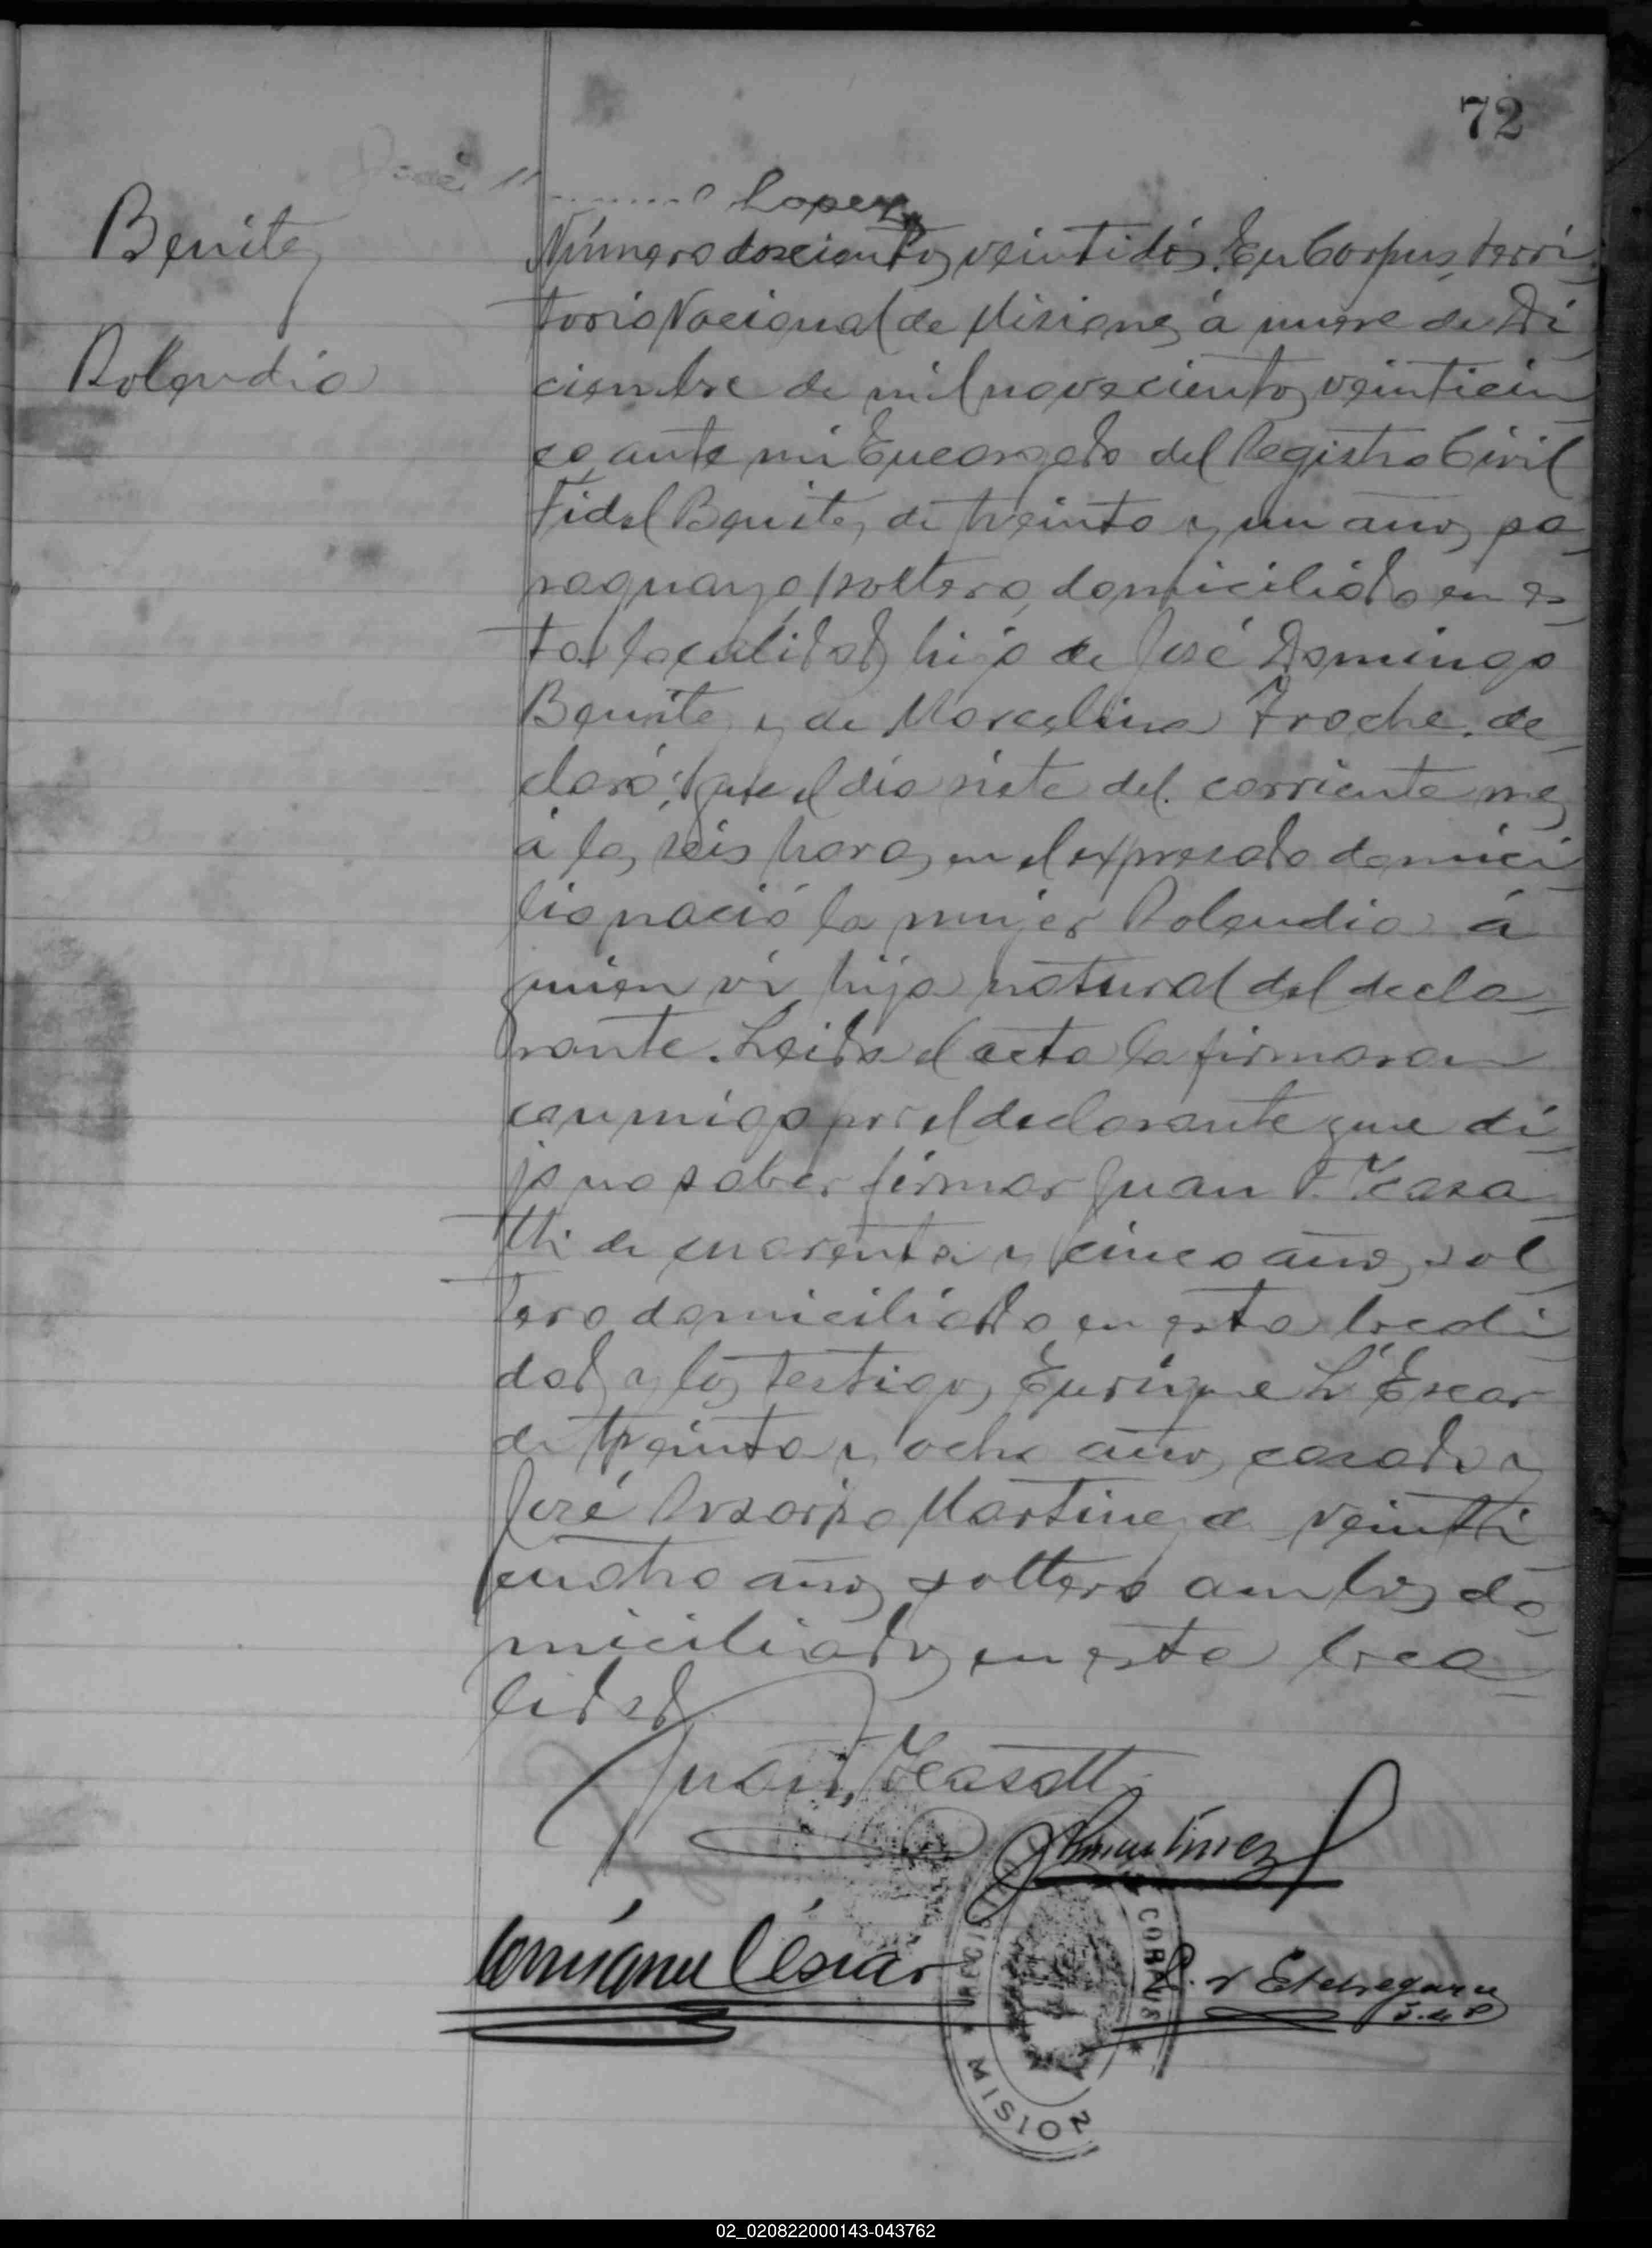 72
Lopez
Benitez
Rolendia
Número doscientos veintidós. En Corpus, terri-
torio Nacional de Misiones, á nueve de Di-
ciembre de mil novecientos veinticin
co, ante mi Encargado del Registro Civil
Fidel Benitez, de treinta y un años, pa-
raguayo, soltero, domiciliado en es-
ta localidad, hijo de José Domingo
Benitez y de Marcelina Troche, de-
claró: que el día siete del corriente mes
á las seis horas, en el expresado domici-
lio nació la mujer Rolendia á
quien vi hija natural del decla-
rante. Leida el acta la firmaron
conmigo por el declarante que di-
jo no saber firmar Juan F. Icasa-
tti de cuarenta y cinco años, sol-
tero domiciliado en esta locali-
dad, y los testigos, Enrique L'Escar
de treinta y ocho años, casado y
José Martinez de veinti
cuatro años, soltero ambos do-
miciliados en esta loca-
lidad.
Juan F. Icasatti
Martinez
L. V. Etchegaray
J. de P.
REGIST
CORPUS
MISION
02_020822000143-043762